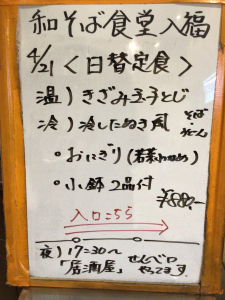 和そば食堂入福
4/21<日替定食>
温)きざみ玉子とじ
冷)冷したぬき風
そば
・うどん
・おにぎり(若菜わかめ)
・小鉢2品付
¥880-
入口こちら
夜)17:30～
「居酒屋」せんべろ
やってます